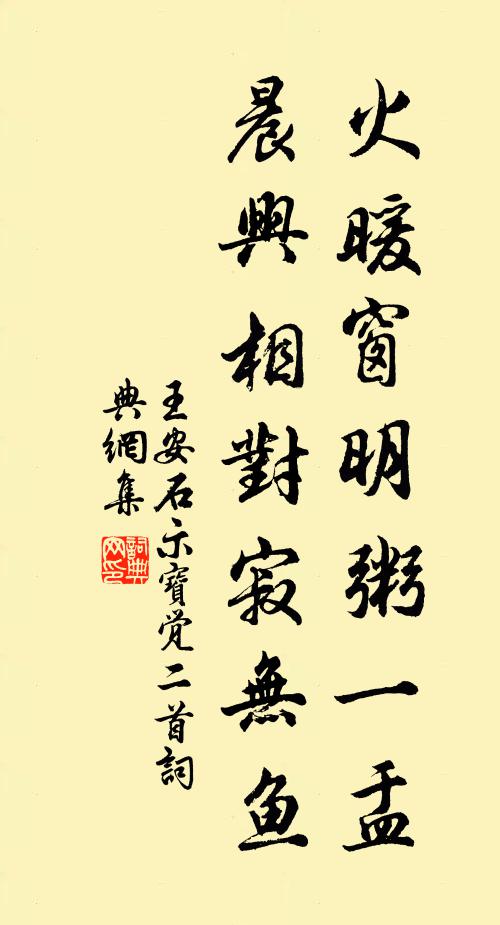 火暖窗明粥一盂
晨興相對寂無魚
王安石示寶覺二首詞
典網集
詞典網印